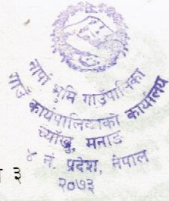 नार्पा भूमि गाउँपालिका
गाउँ कार्यपालिकाको कार्यालय
च्याखु, मनाङ
४ नं. प्रदेश, नेपाल
२०७३
३